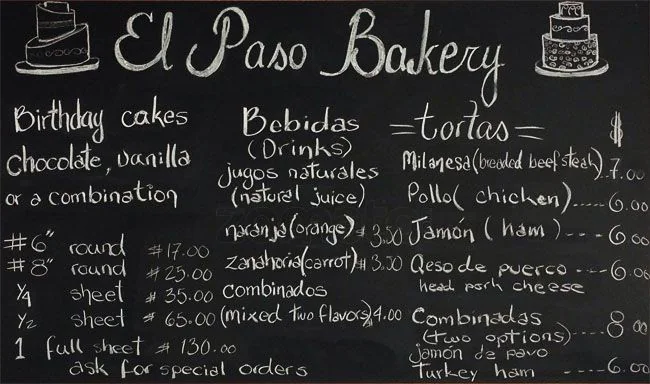 El Paso Bakery
Birthday cakes
chocolate, vanilla
or a combination
#6" round $17.00
#8" round $25.00
1/4 sheet $35.00
1/2 sheet $65.00
1 full sheet $130.00
ask for special orders
Bebidas
(Drinks)
jugos naturales
(natural juice)
naranja(orange) $3.50
zanahoria(carrot) $3.50
combinados
(mixed two flavors) $4.00
=tortas= $
Milanesa(breaded beef steak) 7.00
Pollo( chicken)-----6.00
Jamón ( ham )----6.00
Qeso de puerco ----6.00
head pork cheese
Combinadas
(two options)----8 00
jamón de pavo
Turkey ham ----6.00